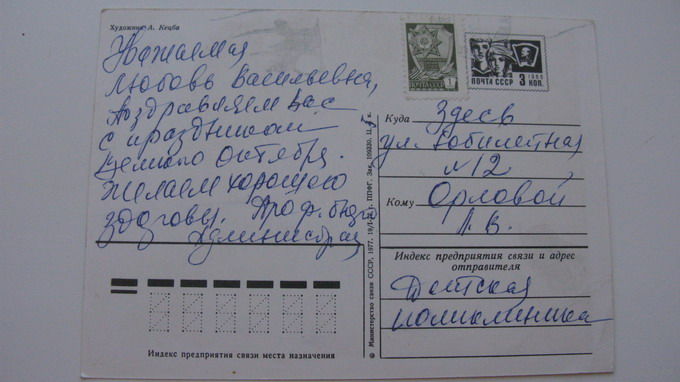 Художник А. Кецба
Уважаемая
Любовь Васильевна,
Поздравляем Вас
с праздником
Великого Октября.
Желаем хорошего
здоровья. Профбюро
Администрац
ПОЧТА СССР
1
ПОЧТА СССР
1966
3
КОП.
Куда
Здесь
ул. Юбилейная
№12
Кому
Орловой
Л. В.
Индекс предприятия связи и адрес
отправителя
Детская
поликлиника
Индекс предприятия связи места назначения
© Министерство связи СССР, 1977. ППФГ. Зак. 109230. Ц. к.